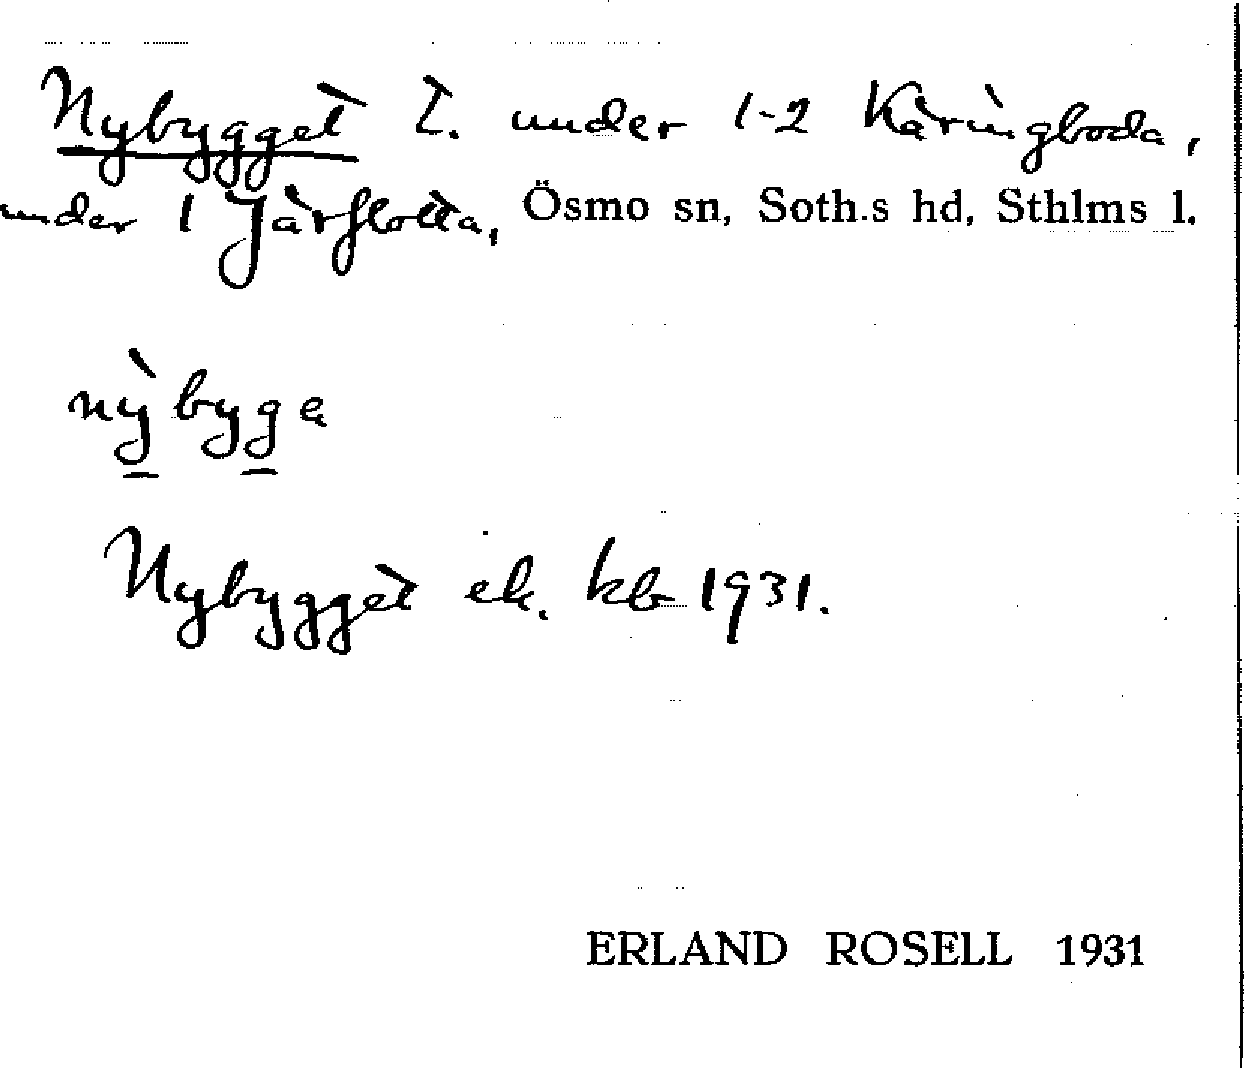 Nybygget l. under 1-2 Käringboda,
under 1 Järflotta, Ösmo sn, Soth.s hd, Sthlms l.
nỳbyga
Nybygget ek. kb 1931.
ERLAND ROSELL 1931